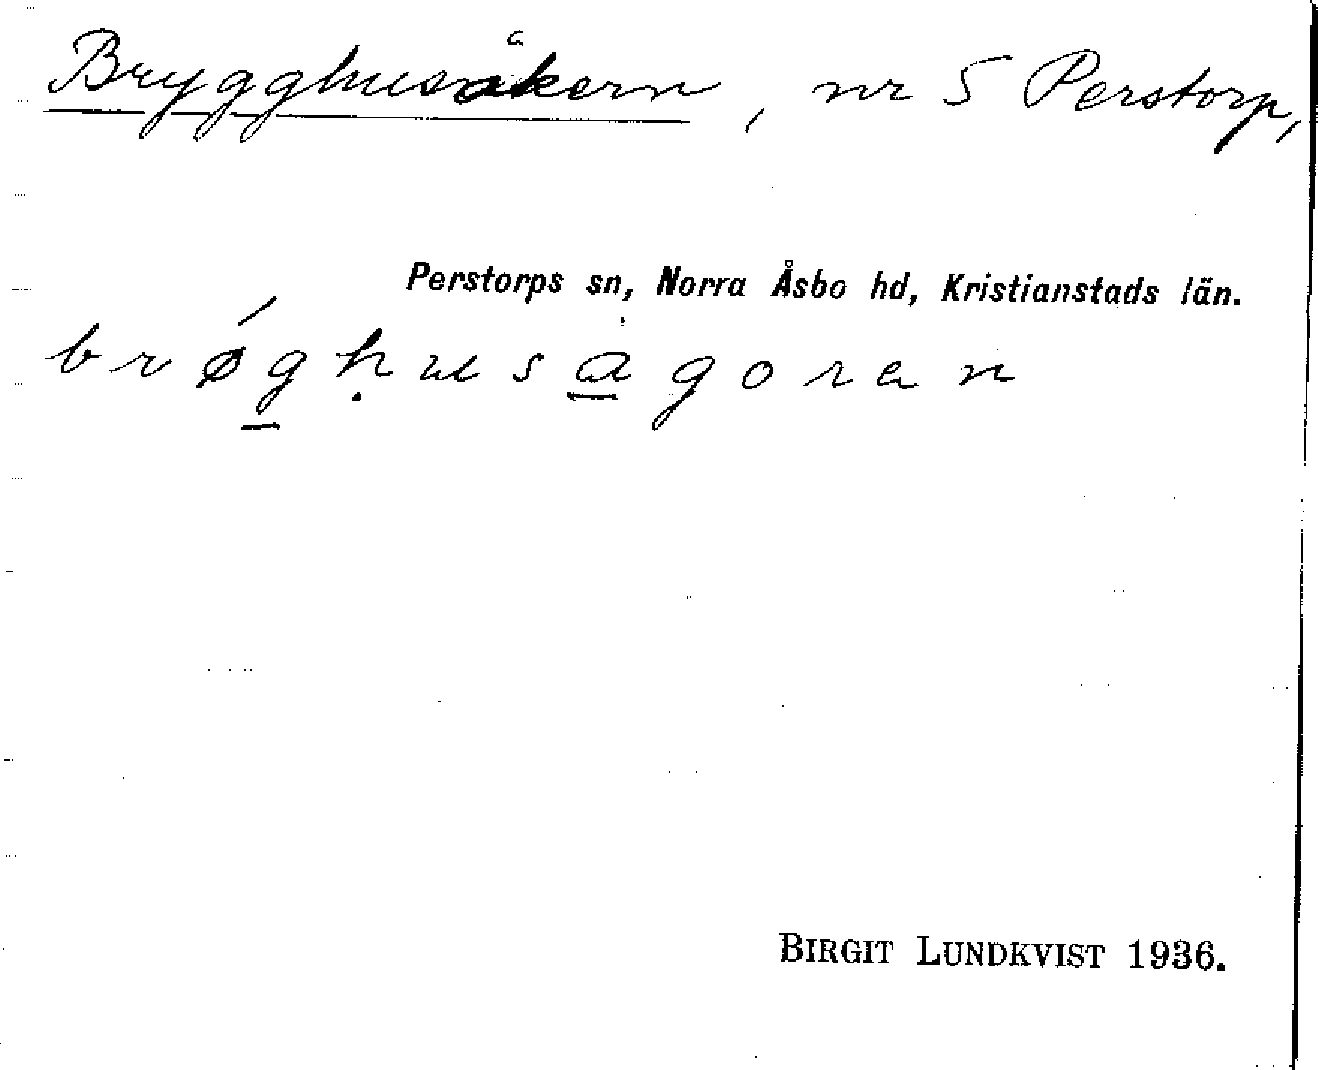 Brygghusåkern, nr 5 Perstorp,
Perstorps sn, Norra Åsbo hd, Kristianstads län.
brǿg̲ḥusa̲goran
BIRGIT LUNDKVIST 1936.